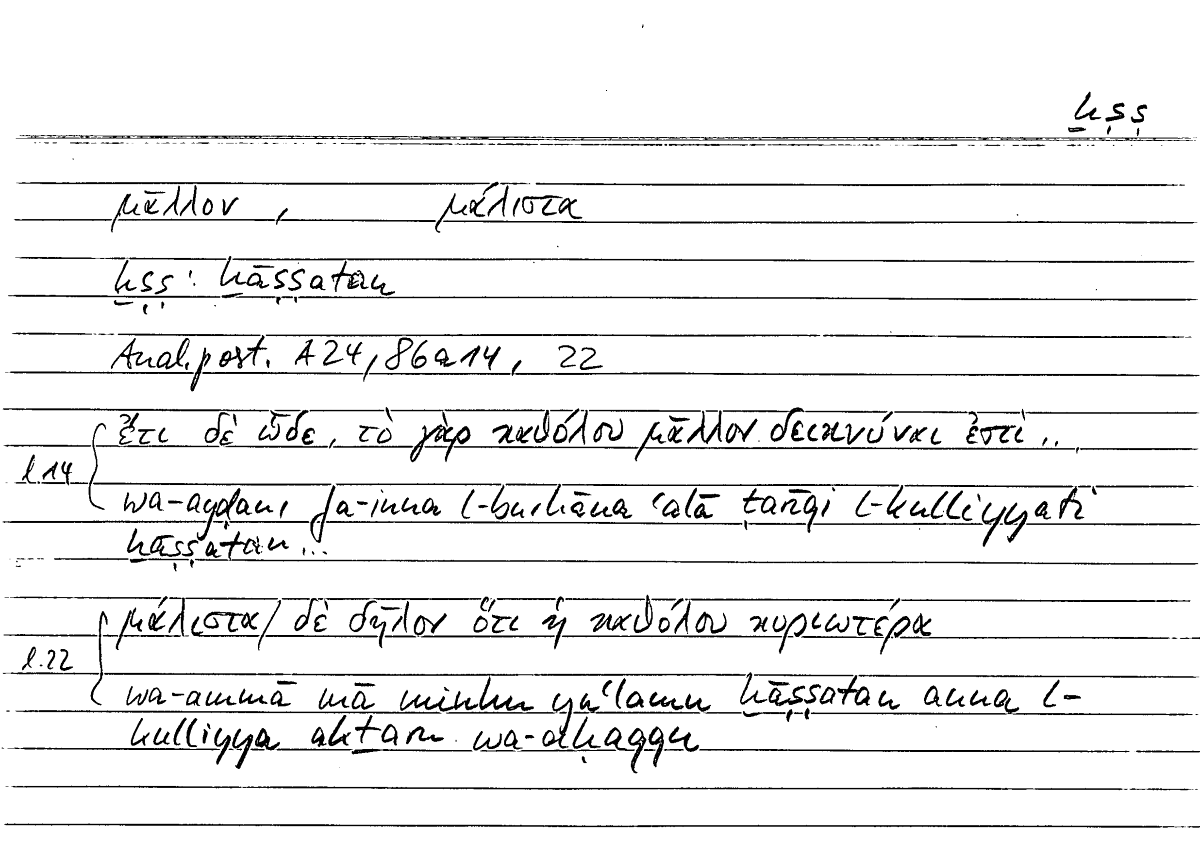 ḫṣṣ
μᾶλλον , μάλιστα
ḫṣṣ : ḫāṣṣatan
Anal. post. A 24, 86a14, 22
ἔτι δὲ ὧδε, τὸ γὰρ καθόλου μᾶλλον δεικνύναι ἐστὶ ..
l.14
wa-ayḍan, fa-inna l-burhāna ʿalā ṭarīqi l-kulliyyati
ḫāṣṣatan ...
μάλιστα/ δὲ δῆλον ὅτι ἡ καθόλου κυριωτέρα
l.22
wa-ammā mā minhu yaʿlamu ḫāṣṣatan anna l-
kulliyya akṯaru wa-aḥaqqu